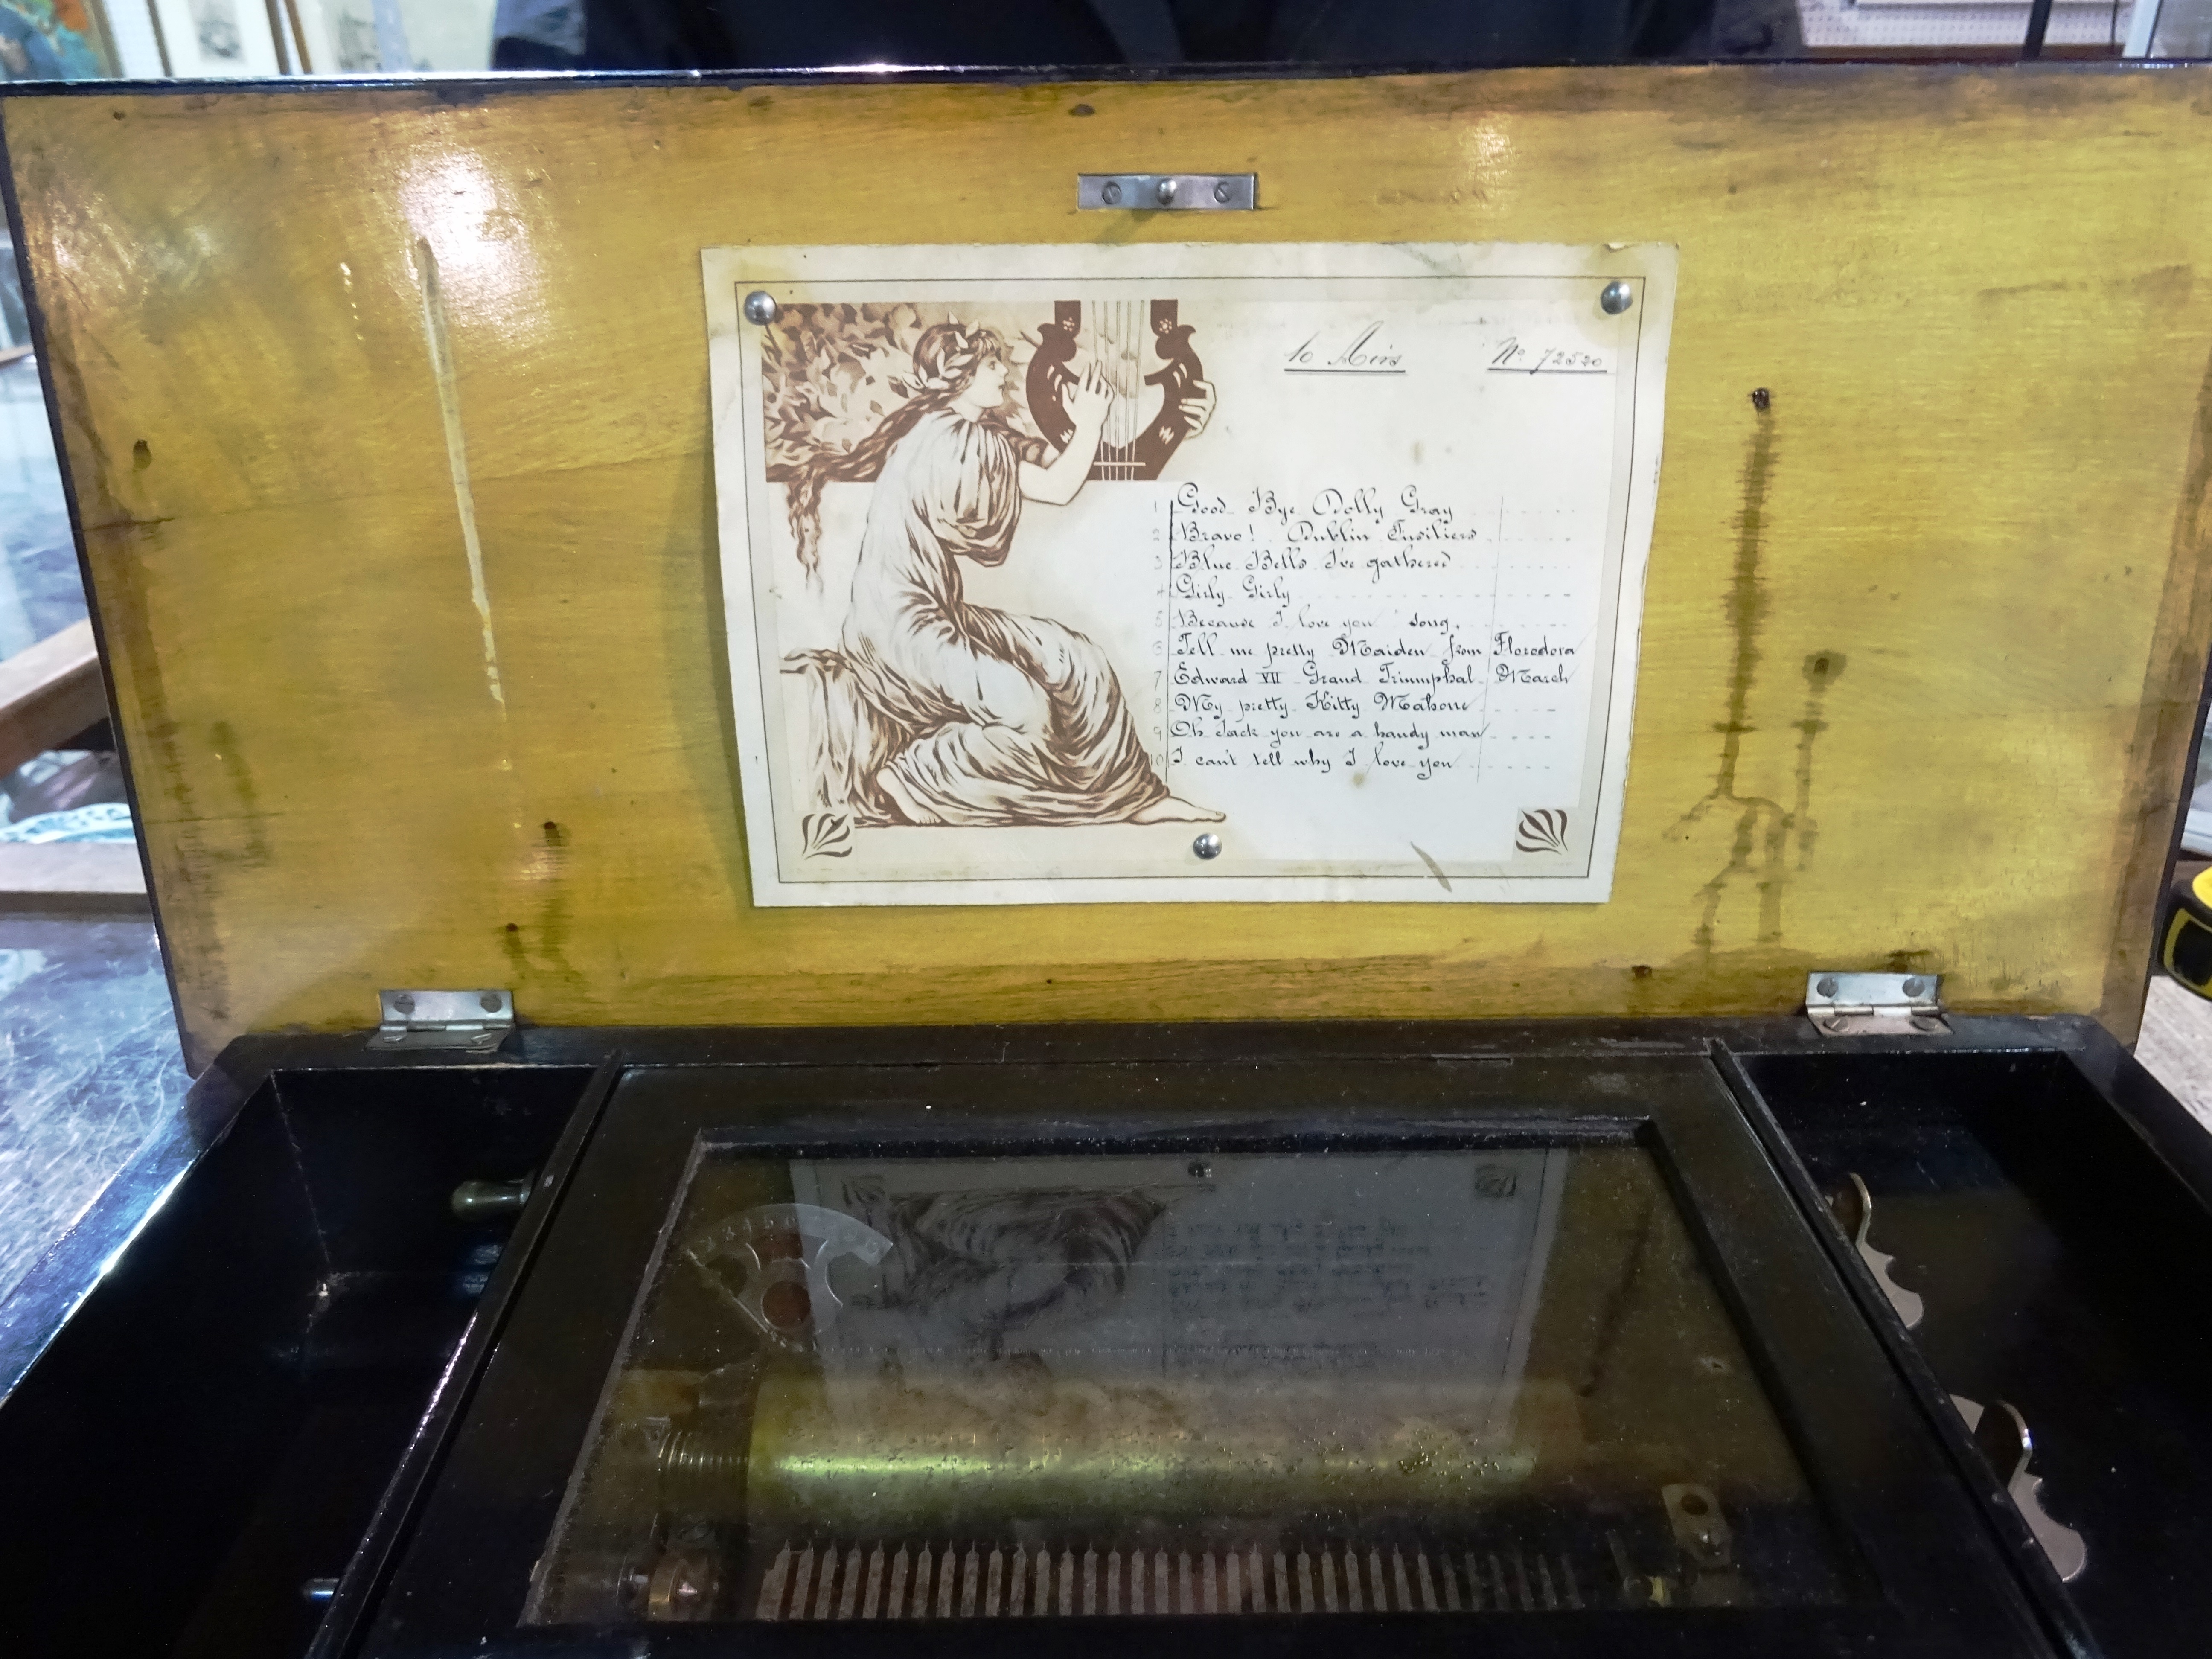 10 Airs
Nº 72520
1 Good Bye Dolly Gray
2 Bravo! Dublin Fusiliers
3 Blue Bells I've gathered
4 Girly Girly
5 Because I love you song.
6 Tell me pretty Maiden from Florodora
7 Edward VII Grand Triumphal March
8 My pretty Kitty Mahone
9 Oh Jack you are a handy man
10 I can't tell why I love you